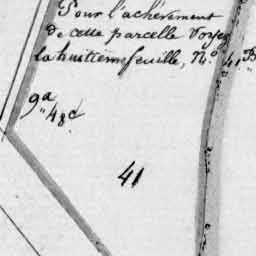 Pour l'achèvement
de cette parcelle Voyez
la huitieme feuille, N.° 41 B
9a
" 48c
41